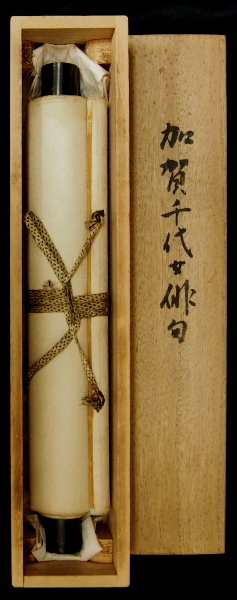 加賀千代女俳句